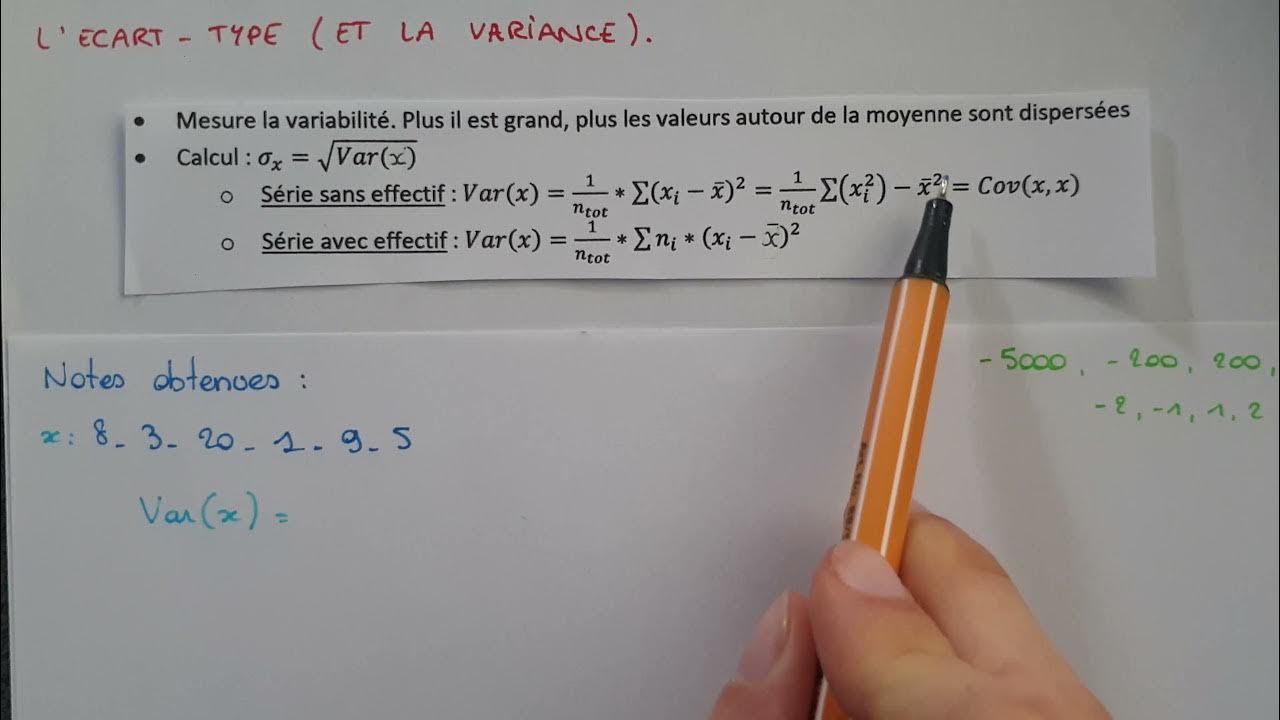 L'ECART - TYPE ( ET LA VARIANCE ).
• Mesure la variabilité. Plus il est grand, plus les valeurs autour de la moyenne sont dispersées
• Calcul : σₓ = √Var(x)
○ Série sans effectif : Var(x) = 1/n_tot * ∑(xᵢ − x̄)² = 1/n_tot ∑(xᵢ²) − x̄² = Cov(x, x)
○ Série avec effectif : Var(x) = 1/n_tot * ∑ nᵢ * (xᵢ − x̄)²
- 5000 , - 200 , 200 ,
- 2 , -1 , 1 , 2
Notes obtenues :
x : 8 - 3 - 20 - 1 - 9 - 5
Var(x) =